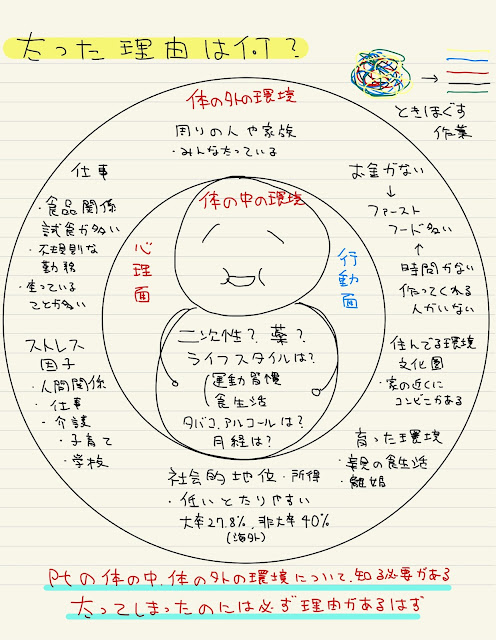 太った理由は何？
ときほぐす
作業
体の外の環境
周りの人や家族
・みんな太っている
仕事
・食品関係
試食が多い
・不規則な
勤務
・座っている
ことが多い
お金がない
↓
ファースト
フード多い
↑
時間がない
作ってくれる
人がいない
体の中の環境
心理面
行動面
二次性？薬？
ライフスタイルは？
運動習慣
食生活
タバコ、アルコールは？
月経は？
ストレス
因子
・人間関係
・仕事
・介護
・子育て
・学校
住んでる環境
文化圏
・家の近くに
コンビニがある
育った環境
・親の食生活
・離婚
社会的地位・所得
・低いとなりやすい
大卒27.8%、非大卒40%
(海外)
Ptの体の中、体の外の環境について、知る必要がある
太ってしまったのには必ず理由があるはず